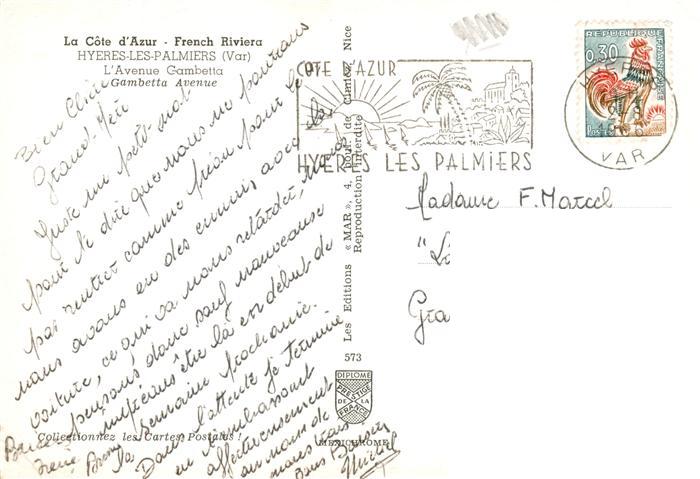 La Côte d'Azur - French Riviera
HYERES-LES-PALMIERS (Var)
L'Avenue Gambetta
Gambetta Avenue
Bien Chère
Grand Mère
Juste un petit mot
pour te dire que nous ne pourrons
pas rentrer comme prévu pour le
nous avons eu des ennuis avec la
voiture, ce qui va nous retarder, nous
pensons donc sauf mauvaise
être là en début de
la semaine prochaine.
Dans l'attente je termine
en t'embrassant
affectueusement
au nom de
nous tous
Bons Baisers
Michel
Collectionnez les Cartes Postales !
Les Editions « MAR », 4, Nice
Reproduction interdite
573
DIPLOME
PRESTIGE
DE LA
FRANCE
MEXICHROME
COTE D'AZUR
HYERES LES PALMIERS
REPUBLIQUE
FRANÇAISE
0,30
POSTES
VAR
Madame F. Marcel
"Li
Gra